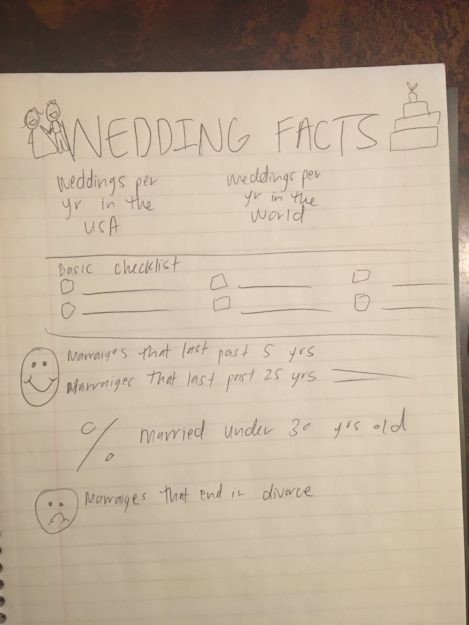 WEDDING FACTS
Weddings per
yr in the
USA
Weddings per
yr in the
World
Basic checklist
Marraiges that last past 5 yrs
Marraiges that last past 25 yrs
% married under 30 yrs old
Marraiges that end in divorce